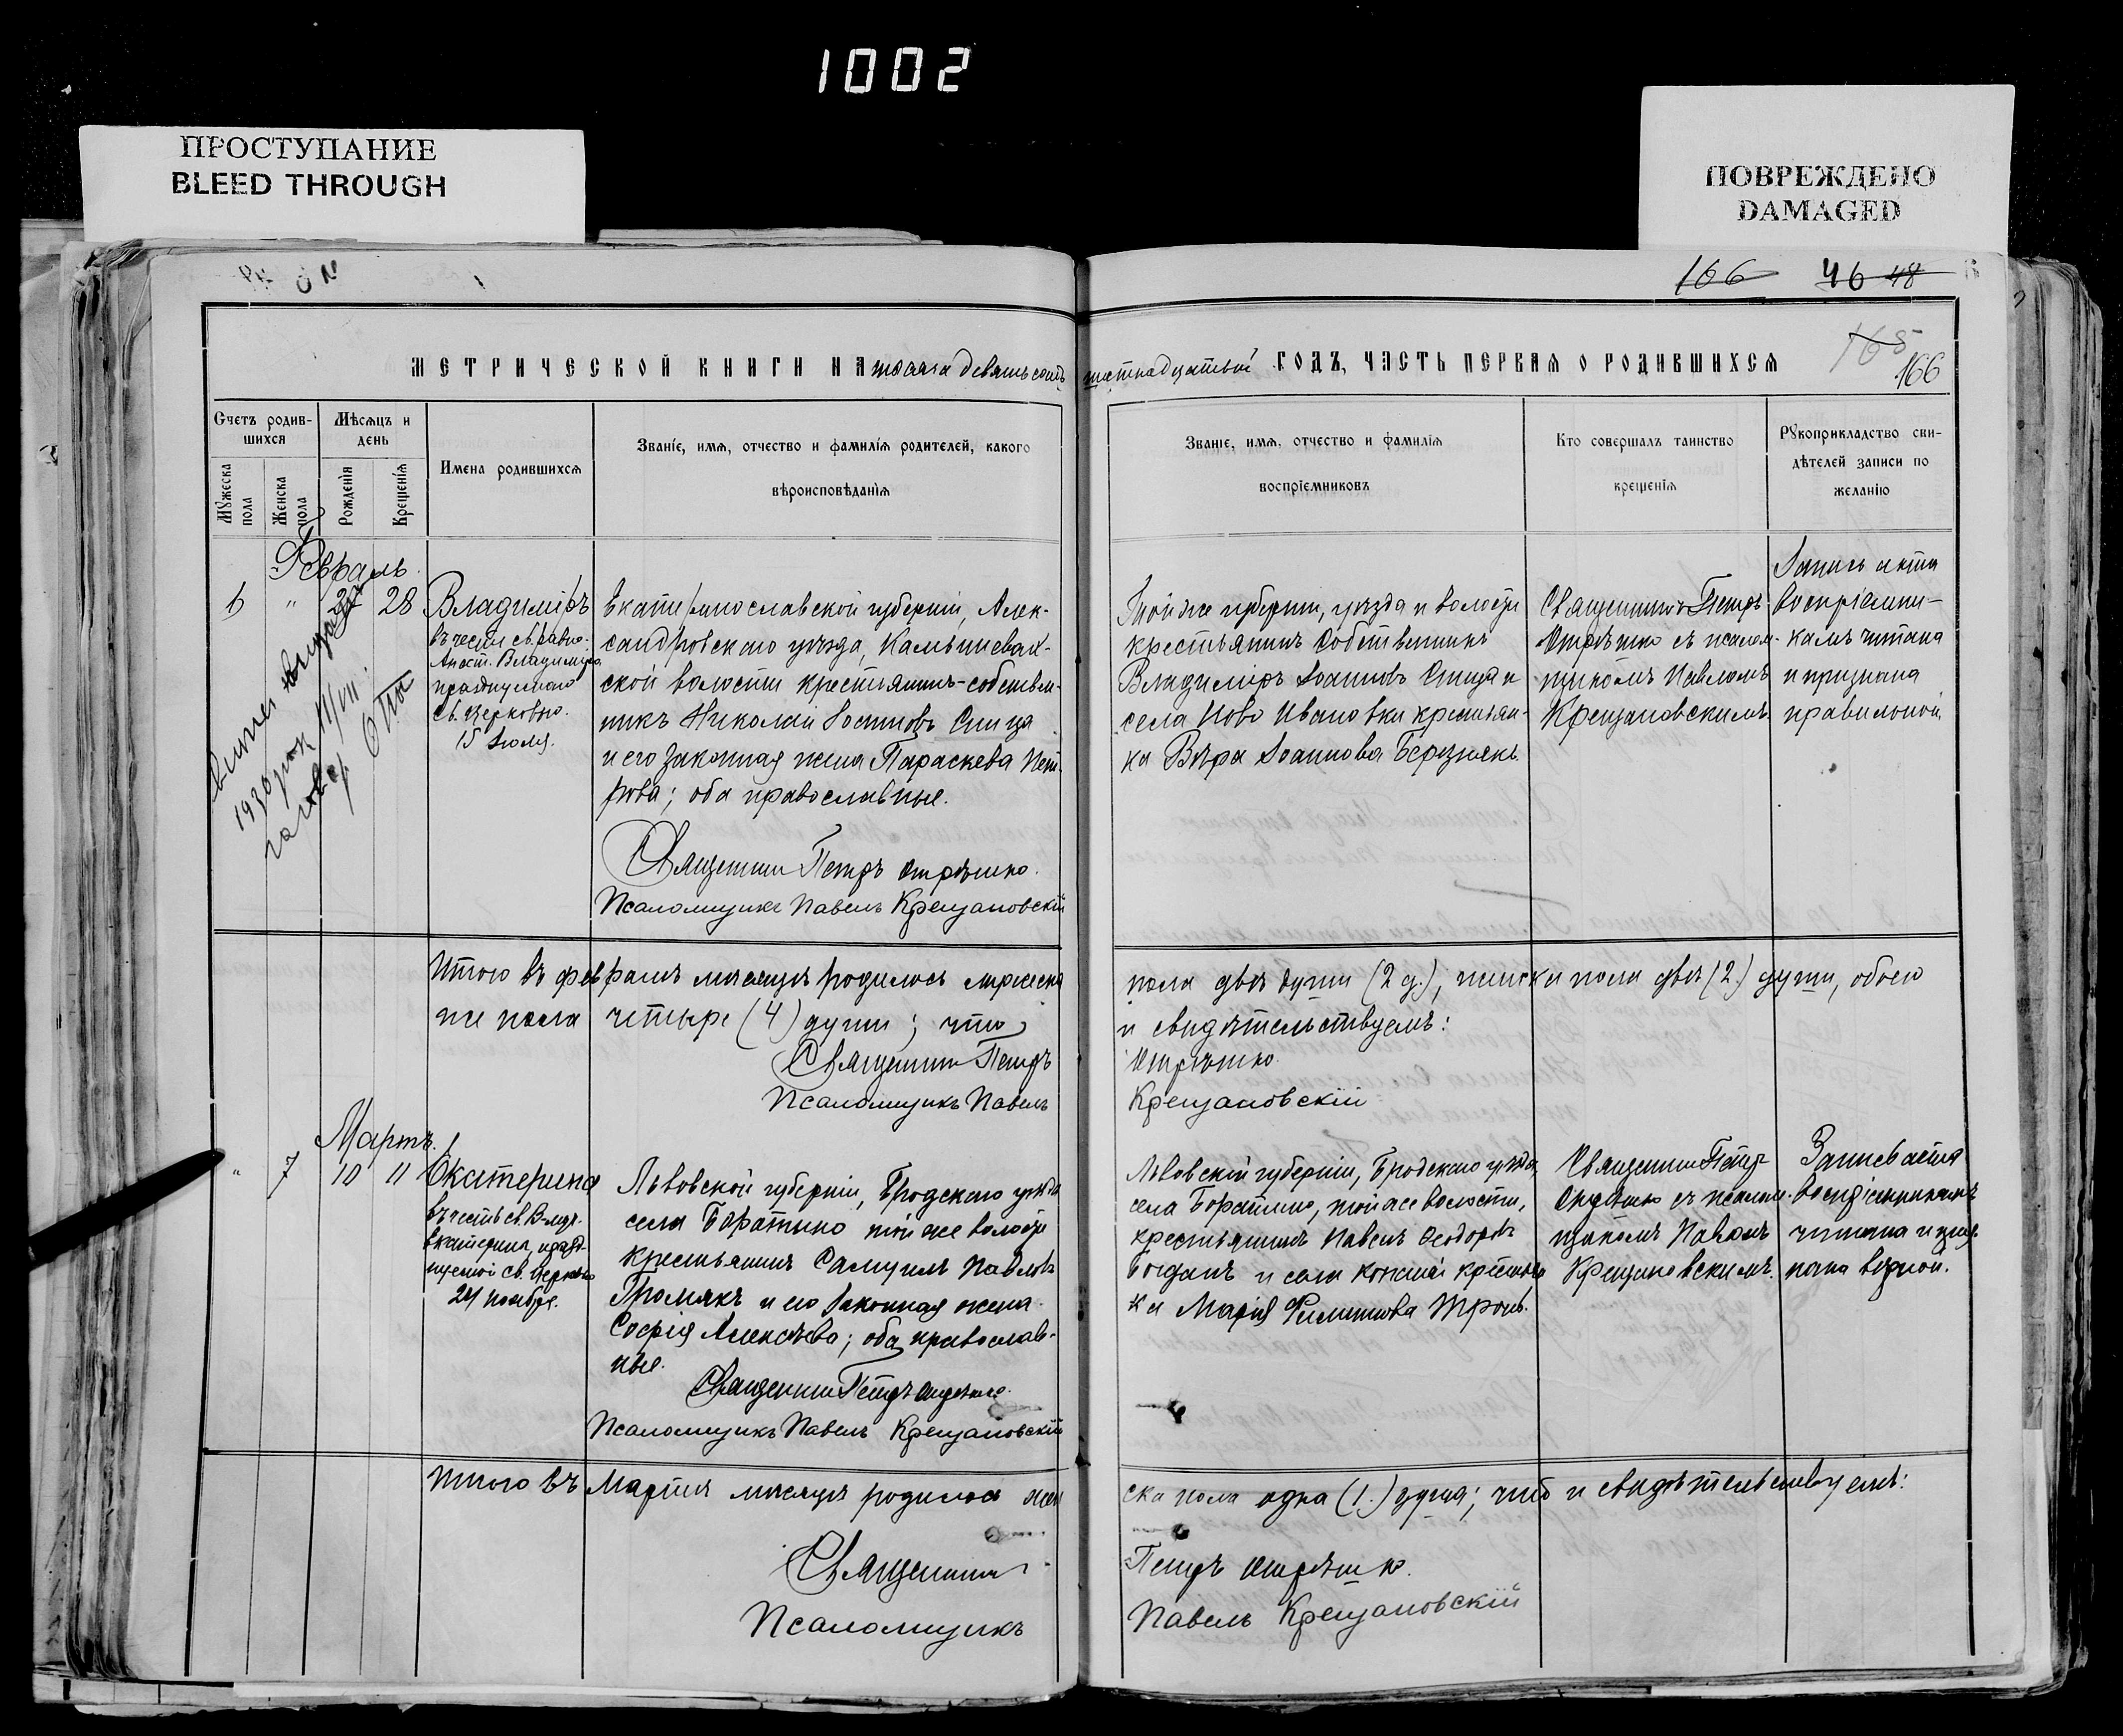 1002
ПРОСТУПАНИЕ
BLEED THROUGH
ПОВРЕЖДЕНО
DAMAGED
166 46 48
165
166
МЕТРИЧЕСКОЙ КНИГИ НА тысяча девятьсотъ шестнадцатый ГОДЪ, ЧАСТЬ ПЕРВАЯ О РОДИВШИХСЯ
Счетъ родив-
шихся
Мѣсяцъ и
день
Мужеска
пола
Женска
пола
Рожденія
Крещенія
Имена родившихся
Званіе, имя, отчество и фамилія родителей, какого
вѣроисповѣданія
Званіе, имя, отчество и фамилія
воспріемниковъ
Кто совершалъ таинство
крещенія
Рукоприкладство сви-
дѣтелей записи по
желанію
Февраль
6 " 27 28
Владиміръ
въ честь св. равно-
Апост. Владиміра
празднуемаго
св. церковью
15 Іюля.
Екатеринославской губерніи, Алек-
сандровскаго уѣзда, Камышевах-
ской волости крестьянинъ-собствен-
никъ Николай Іоанновъ Спица
и его законная жена Параскева Пет-
рова; оба православные.
Священникъ Петръ Отрѣшко.
Псаломщикъ Павелъ Крещановскій
Той же губерніи, уѣзда и волости
крестьянинъ собственникъ
Владиміръ Іоанновъ Спица и
села Ново Ивановки крестьян-
ка Вѣра Іоаннова Березнякъ.
Священникъ Петръ
Отрѣшко съ псалом-
щикомъ Павломъ
Крещановскимъ.
Запись акта
воспріемни-
камъ читана
и признана
правильной.
Итого въ февралѣ мѣсяцѣ родилось мужеска пола двѣ души (2 д.), женска пола двѣ (2.) души, обоего
же пола четыре (4) души; что и свидѣтельствуемъ:
Священникъ Петръ Отрѣшко.
Псаломщикъ Павелъ Крещановскій
Мартъ.
" 7 10 11
Екатерина
въ честь св. В-муч.
Екатерины, празд-
нуемой св. церковью
24 ноября.
Львовской губерніи, Бродскаго уѣзда
села Боратино той же волости
крестьянинъ Самуилъ Павловъ
Громякъ и его законная жена
Софія Алексѣева; оба православ-
ные.
Священникъ Петръ Отрѣшко.
Псаломщикъ Павелъ Крещановскій
Львовской губерніи, Бродскаго уѣзда,
села Боратино, той же волости,
крестьянинъ Павелъ Ѳеодоровъ
Богданъ и села крестьян-
ка Марія Филиппова
Священникъ Петръ
Отрѣшко съ псалом-
щикомъ Павломъ
Крещановскимъ.
Запись акта
воспріемникамъ
читана и приз-
нана вѣрной.
Итого въ Мартѣ мѣсяцѣ родилось женска пола одна (1.) душа; что и свидѣтельствуемъ:
Священникъ Петръ Отрѣшко.
Псаломщикъ Павелъ Крещановскій